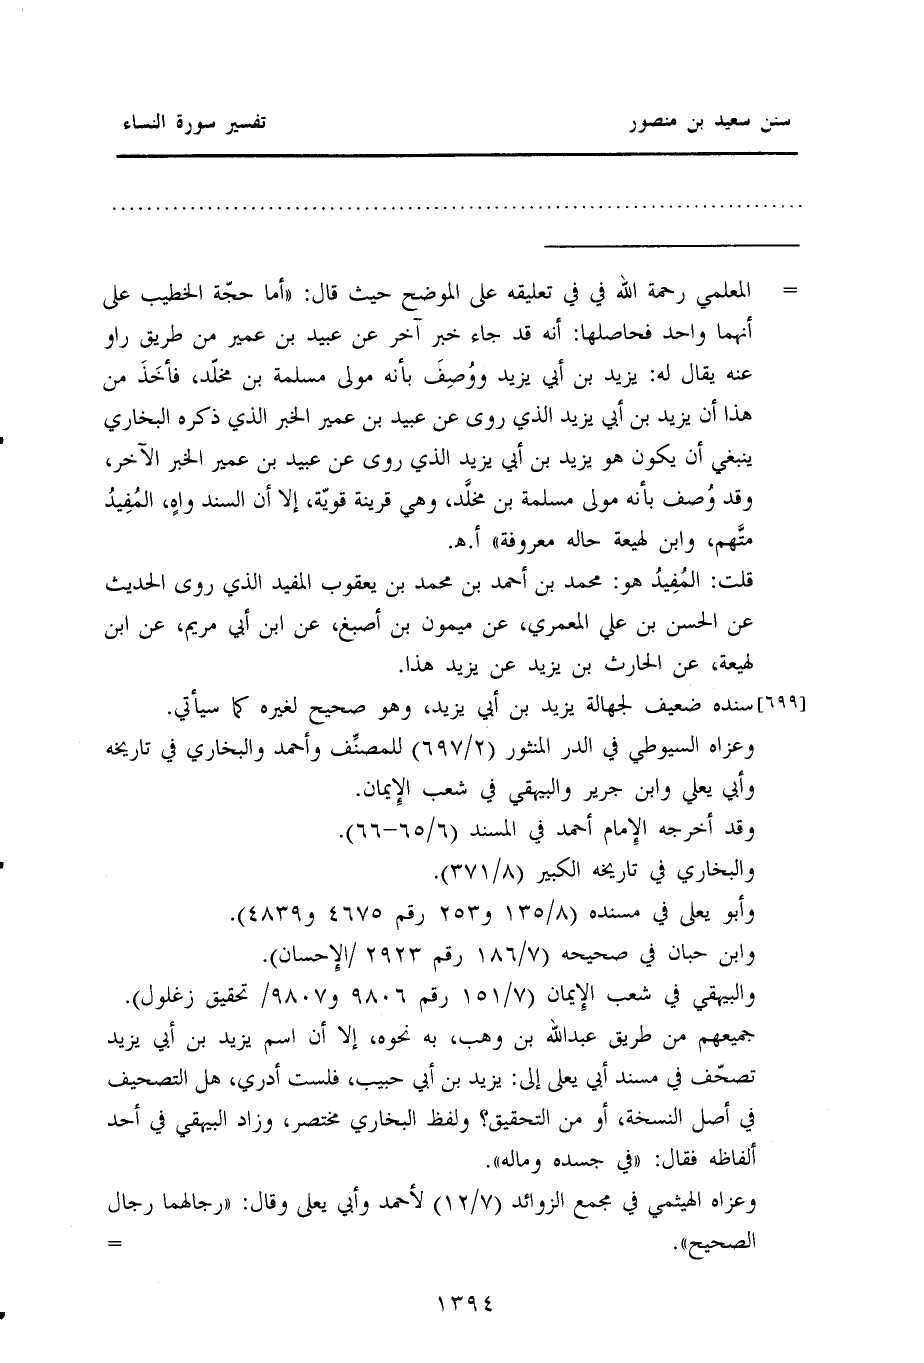 سنن سعيد بن منصور تفسير سورة النساء
= المعلمي رحمة الله في في تعليقه على الموضح حيث قال: «أما حجّة الخطيب على
أنهما واحد فحاصلها: أنه قد جاء خبر آخر عن عبيد بن عمير من طريق راو
عنه يقال له: يزيد بن أبي يزيد ووُصِفَ بأنه مولى مسلمة بن مخلّد، فأخَذَ من
هذا أن يزيد بن أبي يزيد الذي روى عن عبيد بن عمير الخبر الذي ذكره البخاري
ينبغي أن يكون هو يزيد بن أبي يزيد الذي روى عن عبيد بن عمير الخبر الآخر،
وقد وُصف بأنه مولى مسلمة بن مخلَّد، وهي قرينة قويّة، إلا أن السند واهٍ، المُفِيدُ
متَّهم، وابن لهيعة حاله معروفة» أ.هـ.
قلت: المُفِيدُ هو: محمد بن أحمد بن محمد بن يعقوب المفيد الذي روى الحديث
عن الحسن بن علي المعمري، عن ميمون بن أصبغ، عن ابن أبي مريم، عن ابن
لهيعة، عن الحارث بن يزيد عن يزيد هذا.
[٦٩٩] سنده ضعيف لجهالة يزيد بن أبي يزيد، وهو صحيح لغيره كما سيأتي.
وعزاه السيوطي في الدر المنثور (٦٩٧/٢) للمصنِّف وأحمد والبخاري في تاريخه
وأبي يعلي وابن جرير والبيهقي في شعب الإيمان.
وقد أخرجه الإمام أحمد في المسند (٦٥/٦–٦٦).
والبخاري في تاريخه الكبير (٣٧١/٨).
وأبو يعلى في مسنده (١٣٥/٨ و٢٥٣ رقم ٤٦٧٥ و٤٨٣٩).
وابن حبان في صحيحه (١٨٦/٧ رقم ٢٩٢٣ /الإحسان).
والبيهقي في شعب الإيمان (١٥١/٧ رقم ٩٨٠٦ و٩٨٠٧/ تحقيق زغلول).
جميعهم من طريق عبدالله بن وهب، به نحوه، إلا أن اسم يزيد بن أبي يزيد
تصحّف في مسند أبي يعلى إلى: يزيد بن أبي حبيب، فلست أدري، هل التصحيف
في أصل النسخة، أو من التحقيق؟ ولفظ البخاري مختصر، وزاد البيهقي في أحد
ألفاظه فقال: «في جسده وماله».
وعزاه الهيثمي في مجمع الزوائد (١٢/٧) لأحمد وأبي يعلى وقال: «رجالهما رجال
الصحيح». =
١٣٩٤